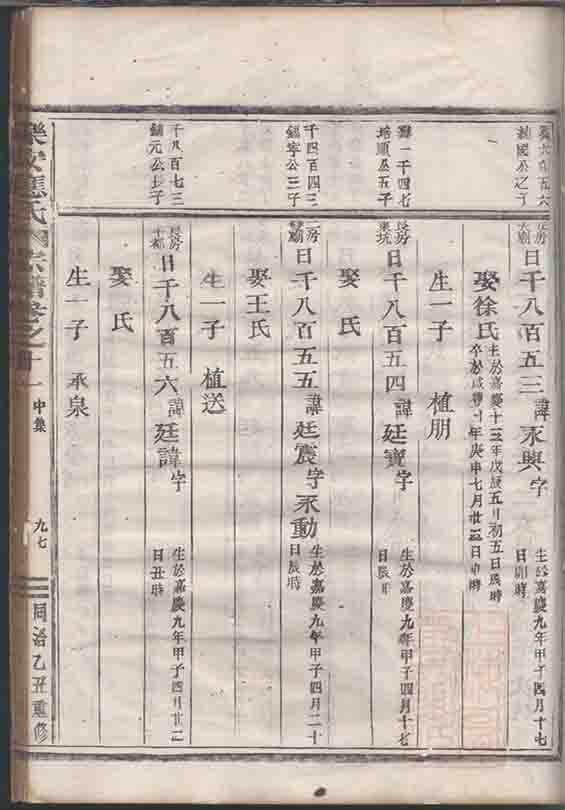 日千八百五三諱永興字
生於嘉慶九年甲子四月十七
日卯時
娶徐氏
生於嘉慶十三年戊辰五月初五日辰時
年庚申七月廿三日申時
生一子 植朋
寡一千四七
培順公五子
長房
東坑
日千八百五四諱廷寶字
生於嘉慶九年甲子四月十七
日辰時
娶 氏
千四百四三
鎰寧公三子
二房
日千八百五五諱廷震字永動
生於嘉慶九年甲子四月二十
日辰時
娶王氏
生一子 植送
千八百七三
鎮元公長子
長房
日千八百五六諱廷諱字
生於嘉慶九年甲子四月廿二
日丑時
娶 氏
生一子 承泉
氏宗譜卷之十一 中集 九七 同治乙丑重修